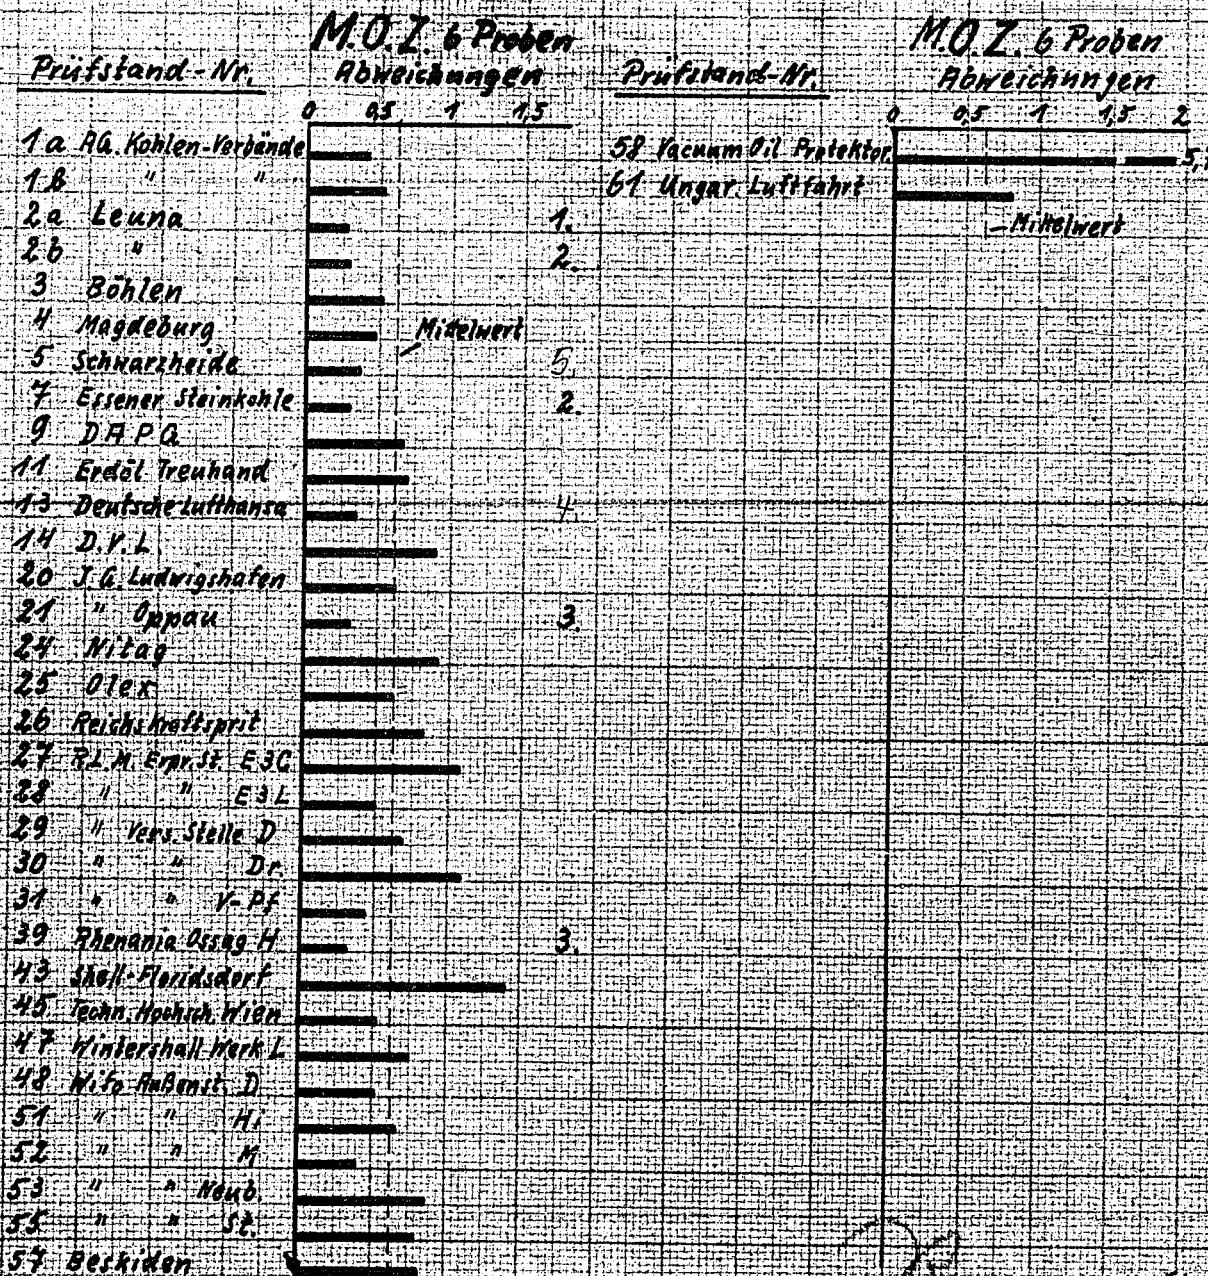 M.O.Z. 6 Proben
Prüfstand-Nr. Abweichungen
0 0,5 1 1,5
1a AG. Kohlen-Verbände
1b " "
2a Leuna 1.
2b " 2.
3 Böhlen
4 Magdeburg Mittelwert
5 Schwarzheide 5.
7 Essener Steinkohle 2.
9 DAPG
11 Erdöl Treuhand
13 Deutsche Lufthansa 4.
14 D.V.L.
20 J.G. Ludwigshafen
21 " Oppau 3.
24 Nitag
25 Olex
26 Reichskraftsprit
27 R.L.M. Erpr. St. E3C
28 " " E3L
29 " Vers. Stelle D
30 " " Dr.
31 " " V-Pf
39 Rhenania Ossag H 3.
43 Shell-Floridsdorf
45 Techn. Hochsch. Wien
47 Wintershall Werk L
48 Wifo Außenst. D
51 " " Hi
52 " " M
53 " " Neub.
55 " " St.
57 Beskiden
M.O.Z. 6 Proben
Prüfstand-Nr. Abweichungen
0 0,5 1 1,5 2
58 Vacuum Oil Protektor
61 Ungar. Luftfahrt
Mittelwert